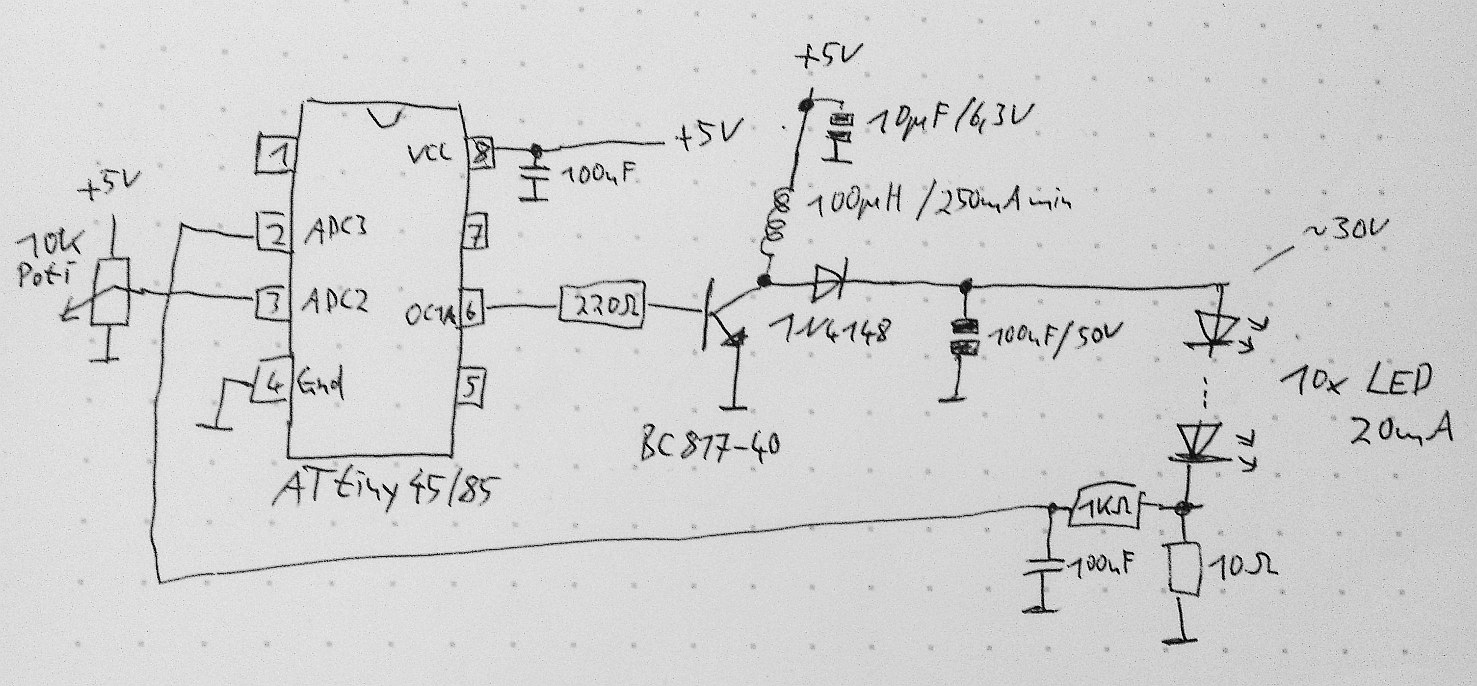 +5V
10µF/6,3V
1
VCC
8
+5V
100nF
+5V
100µH/250mA min
10K
Poti
2
ADC3
7
~30V
3
ADC2
OC1A
6
220Ω
1N4148
100nF/50V
4
Gnd
5
10x LED
20mA
BC817-40
ATtiny45/85
1KΩ
100nF
10Ω